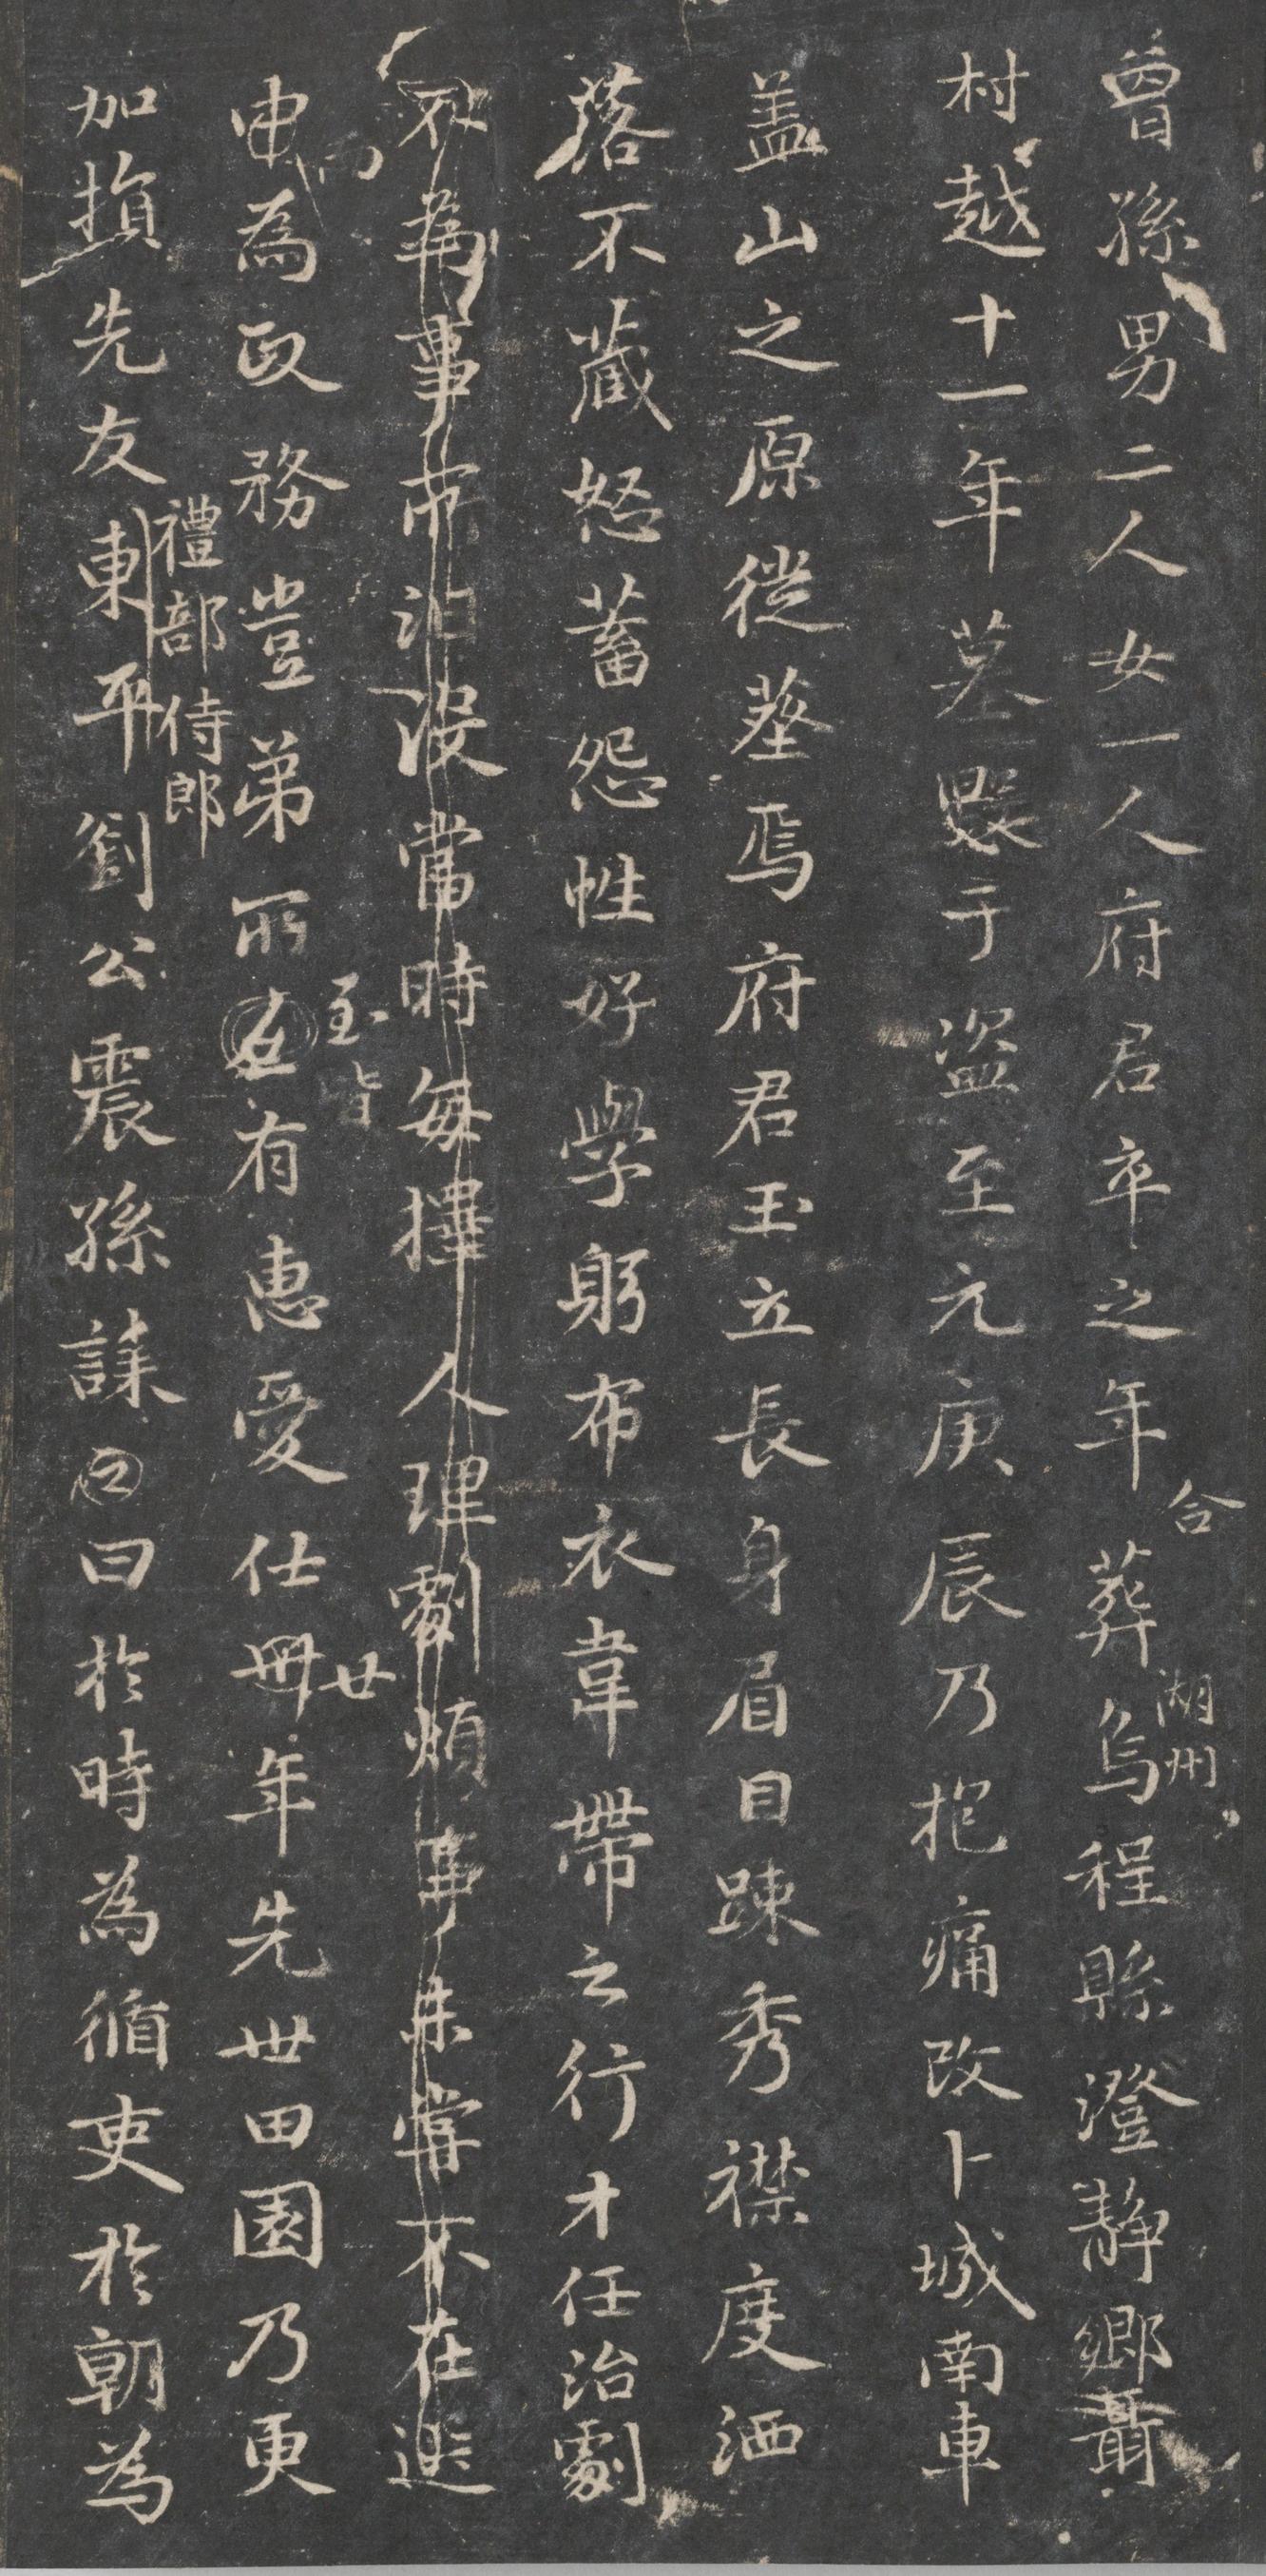 曾孫男二人女一人府君卒之年合葬湖州烏程縣澄靜鄉聶
村越十一年墓毀于盜至元庚辰乃抱痛改卜城南車
盖山之原從葬焉府君玉立長身眉目踈秀襟度洒
落不蔵怒蓄怨性好學躬布衣韋帶之行才任治劇
不為事
沒當時每擇人理劇煩事未嘗不在選
中而為政務豈弟所至皆有惠愛仕卌廿年先世田園乃更
加損先友東平禮部侍郎劉公震孫誄之曰於時為循吏於朝為